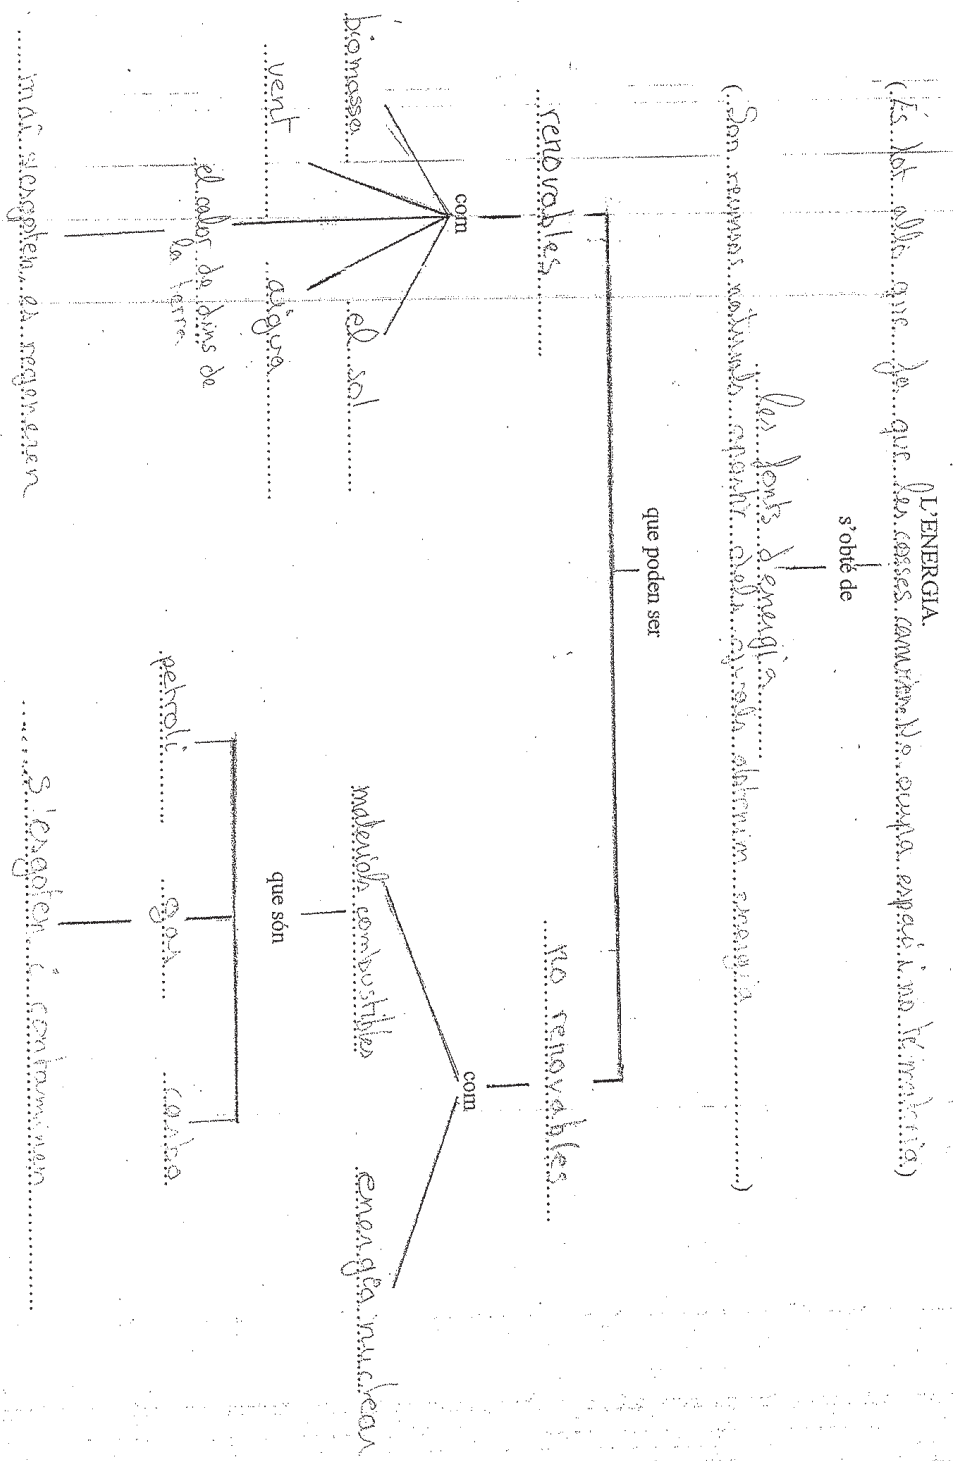 L'ENERGIA.
(És tot allò que fa que les coses canvien. No ocupa espai i no té matèria)
s'obté de
les fonts d'energia
(Son recursos naturals apartir dels quals obtenim energia)
que poden ser
renovables
no renovables
com
com
biomassa
el sol
vent
aigua
el calor de dins de
la terra
mai s'esgoten, es regeneren
materials combustibles
energia nuclear
que són
petroli
gas
carbo
s'esgoten i contaminen